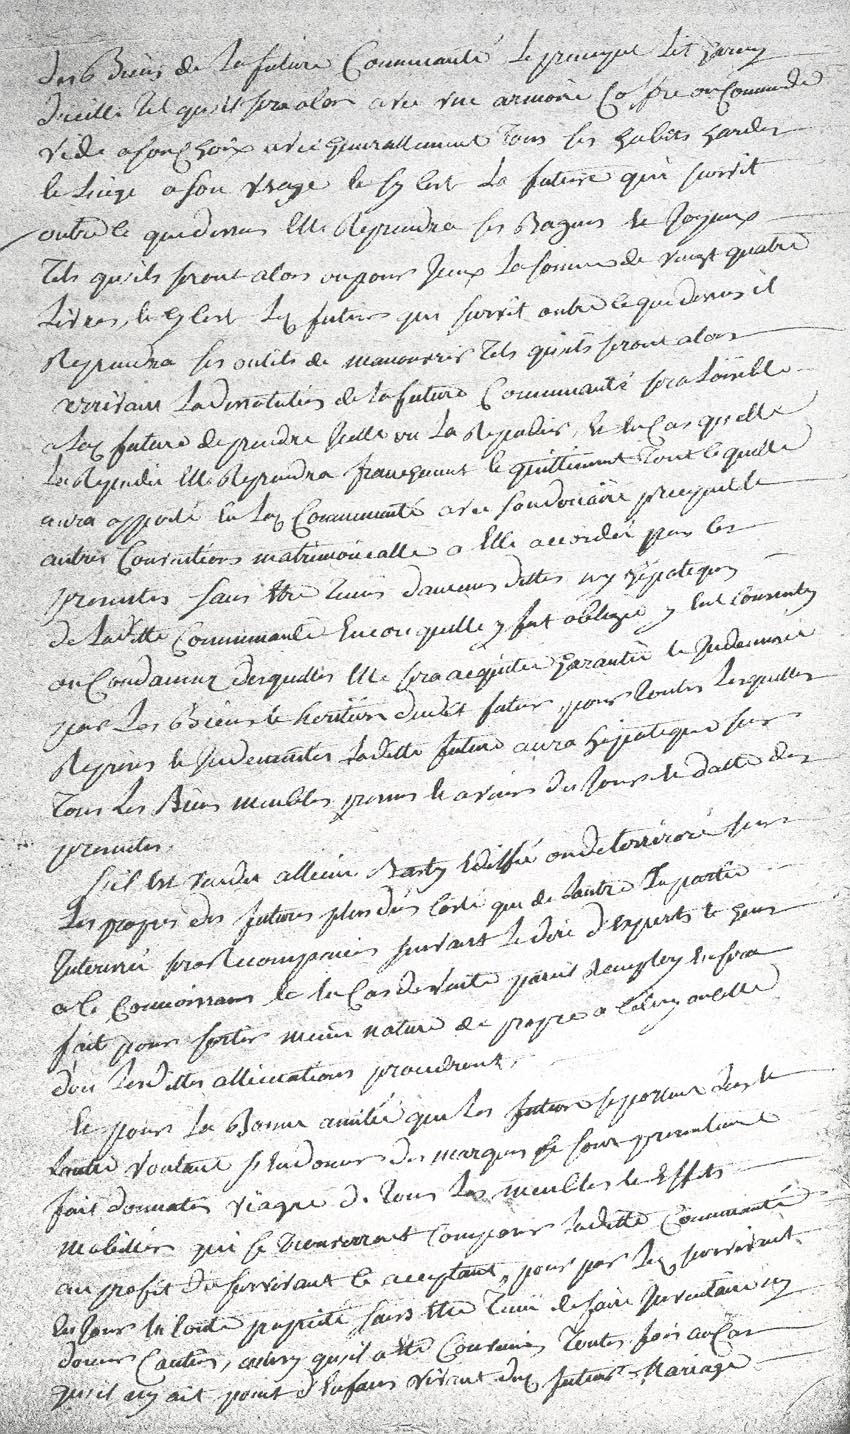 des Biens de la future Communauté le principal Lit garny
d'icelle tel qu'il sera alors avec une armoire Coffre ou Commode
vide a son Choix avec generallement tous ses habits hardes
le Linge a son usage et sy c'est la future qui survit
outre ce que dessus Elle Reprendra ses Bagues et Joyaux
Tels qu'ils seront alors ou pour Iceux la somme de vingt quatre
Livres, et sy c'est led futur qui survit outre ce que dessus il
Reprendra ses outils de manouvrier tels qu'ils seront alors
arrivant La dissolution de la future Communauté sera Loisible
a lad future de prendre Icelle ou La Repudier, et En Cas quelle
La Repudie Elle Reprendra franchement et quittement tout ce quelle
aura apporté En lad Communauté avec son douaire preciput et
autres Conventions matrimonialle a Elle accordée par les
presentes sans Etre tenue d'aucunes dettes ny hipoteques
de Laditte Communauté Encore quelle y fut obligée y Eut Consenty
ou Condamnée desquelles Elle sera acquittée Garantie et Indemnisée
par Les Biens et heritiers dudit futur, pour toutes Lesquelles
Reprises et Indemnités Laditte future aura hipoteque sur
Tous Les Biens meubles presens et avenir du Jour et datte des
presentes.
S'il Est vendu alliené Basty Ediffié ou deterrioré sur
Les propres des futurs plus d'un Costé que de L'autre La partie
Interessée sera Recompensée suivant Le dire d'Experts et gens
a ce Connoissans et En Cas de vente pareil Remploy En sera
fait pour sortir meme nature de propre a Celuy ou Celle
d'ou Lesdittes allienations proviendront.
Et pour La Bonne amitié que Les futurs se portent L'un et
L'autre voulant s'En donner des marques se sont par Ces presentes
fait donnation viagere de tous Les meubles et Effets
mobiliers qui se trouverront Composer Laditte Communauté
au profit du survivant Ce acceptant, pour par led survivant
En Jouir En toute proprieté sans Etre tenu de faire Inventaire ny
donner Caution, ainsy qu'il a Eté Convenu toutes fois au Cas
qu'il n'y ait point d'Enfans vivant dud futur Mariage